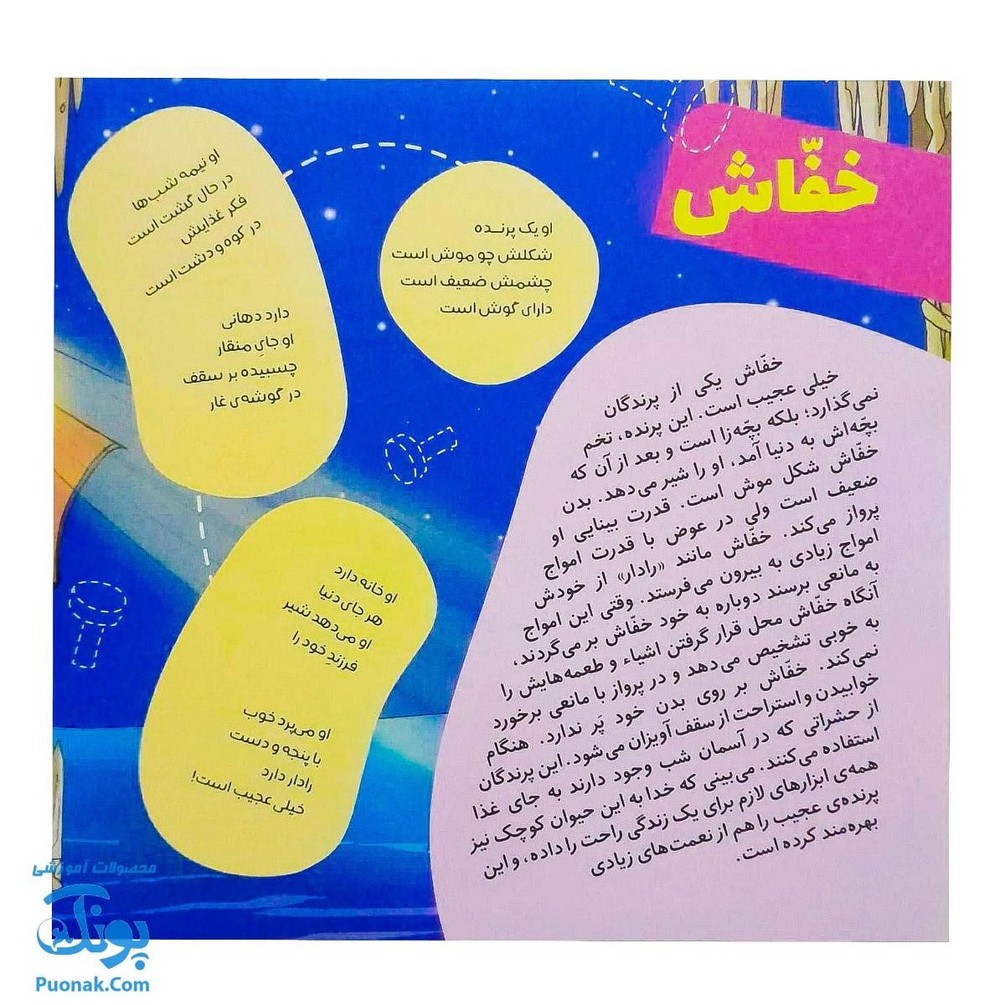 خفّاش
او یک پرنده
شکلش چو موش است
چشمش ضعیف است
دارای گوش است
او نیمه شب‌ها
در حال گشت است
فکر غذایش
در کوه و دشت است
دارد دهانی
او جایِ منقار
چسبیده بر سقف
در گوشه‌ی غار
او خانه دارد
هر جای دنیا
او می‌دهد شیر
فرزندِ خود را
او می‌پرد خوب
با پنجه و دست
رادار دارد
خیلی عجیب است!
خفّاش یکی از پرندگان
خیلی عجیب است. این پرنده، تخم
نمی‌گذارد؛ بلکه بچّه‌زا است و بعد از آن که
بچّه‌اش به دنیا آمد، او را شیر می‌دهد. بدن
خفّاش شکل موش است. قدرت بینایی او
ضعیف است ولی در عوض با قدرت امواج
پرواز می‌کند. خفّاش مانند «رادار» از خودش
امواج زیادی به بیرون می‌فرستد. وقتی این امواج
به مانعی برسند دوباره به خود خفّاش بر می‌گردند،
آنگاه خفّاش محل قرار گرفتن اشیاء و طعمه‌هایش را
به خوبی تشخیص می‌دهد و در پرواز با مانعی برخورد
نمی‌کند. خفّاش بر روی بدن خود پَر ندارد. هنگام
خوابیدن و استراحت از سقف آویزان می‌شود. این پرندگان
از حشراتی که در آسمان شب وجود دارند به جای غذا
استفاده می‌کنند. می‌بینی که خدا به این حیوان کوچک نیز
همه‌ی ابزارهای لازم برای یک زندگی راحت را داده، و این
پرنده‌ی عجیب را هم از نعمت‌های زیادی
بهره‌مند کرده است.
محصولات آموزشی
پونک
Puonak.Com